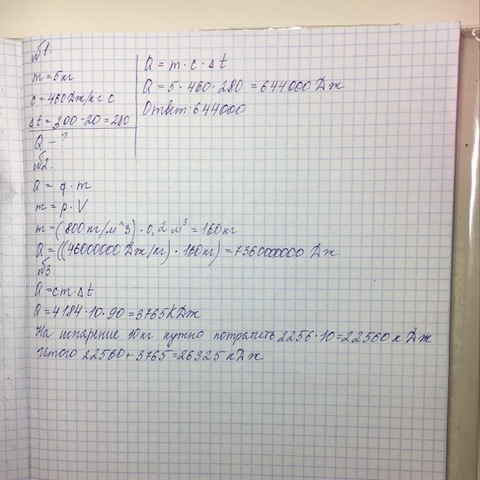 №1.
m = 5 кг
c = 460 Дж/кг с
Δt = 300 - 20 = 280
Q - ?
Q = m · c · Δt
Q = 5 · 460 · 280 = 644000 Дж
Ответ: 644000
№2.
Q = q · m
m = p · V
m = (800 кг/м^3) · 0,2 м³ = 160 кг
Q = ((46000000 Дж/кг) · 160 кг) = 7360000000 Дж
№3
Q = cm · Δt
Q = 4184 · 10 · 90 = 3765 кДж
На испарение 10 кг нужно потратить 2256 · 10 = 22560 кДж
Итого 22560 + 3765 = 26325 кДж